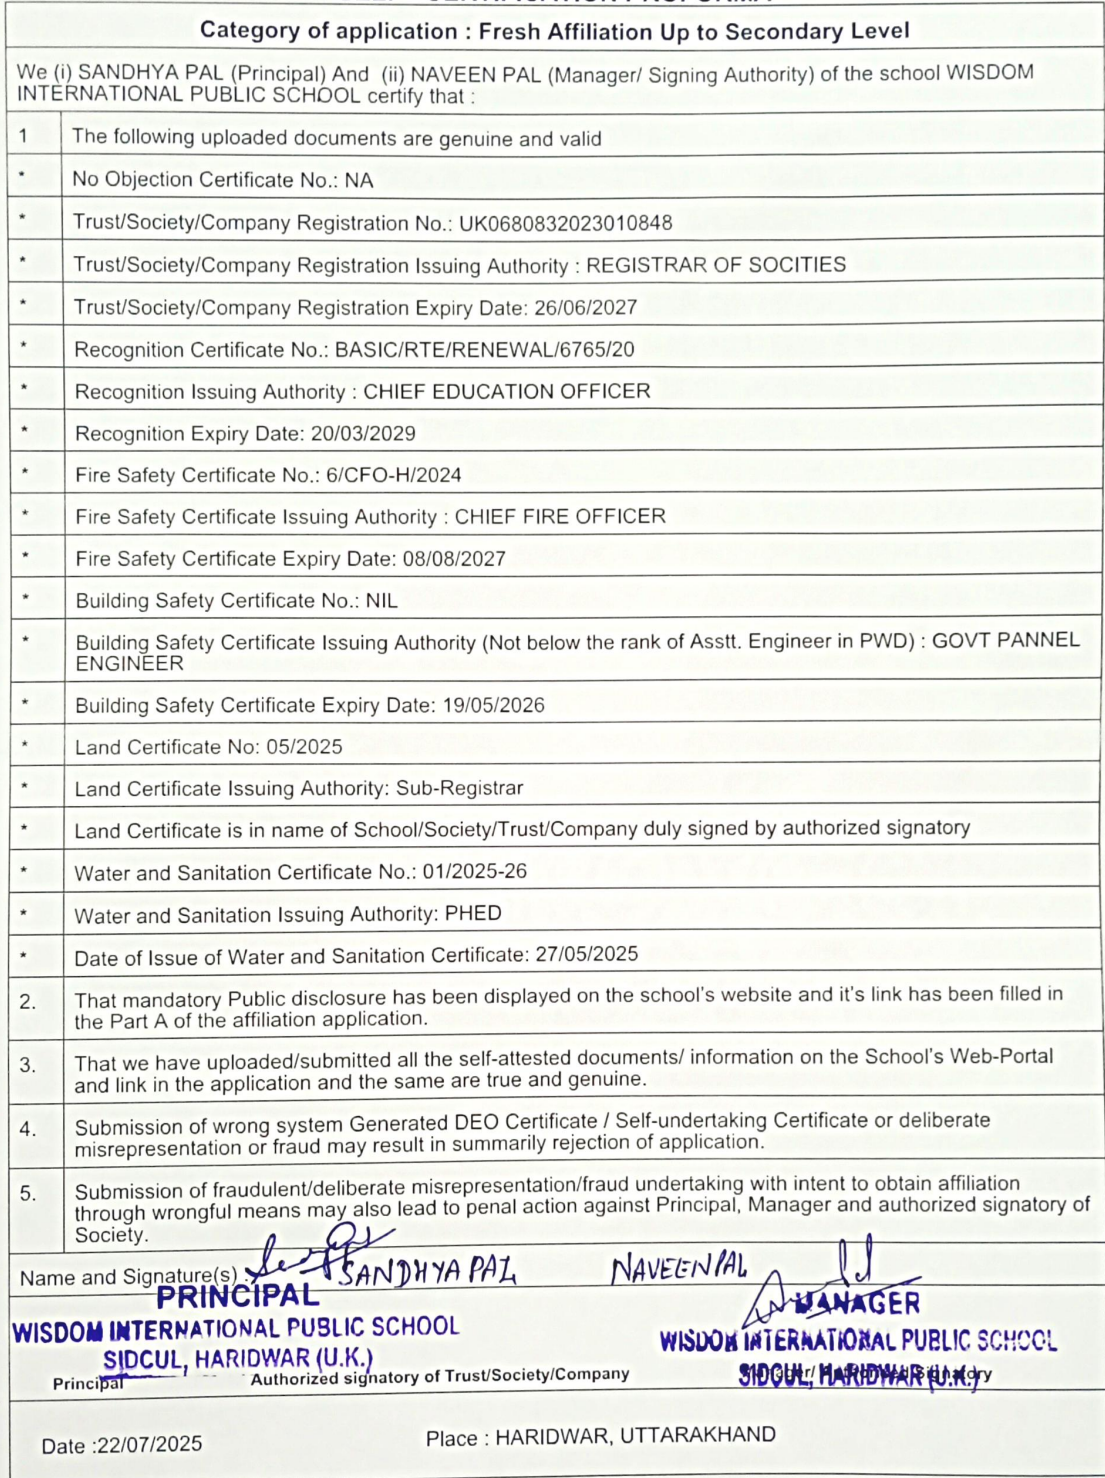 Category of application : Fresh Affiliation Up to Secondary Level
We (i) SANDHYA PAL (Principal) And (ii) NAVEEN PAL (Manager/ Signing Authority) of the school WISDOM
INTERNATIONAL PUBLIC SCHOOL certify that :
1 The following uploaded documents are genuine and valid
* No Objection Certificate No.: NA
* Trust/Society/Company Registration No.: UK0680832023010848
* Trust/Society/Company Registration Issuing Authority : REGISTRAR OF SOCITIES
* Trust/Society/Company Registration Expiry Date: 26/06/2027
* Recognition Certificate No.: BASIC/RTE/RENEWAL/6765/20
* Recognition Issuing Authority : CHIEF EDUCATION OFFICER
* Recognition Expiry Date: 20/03/2029
* Fire Safety Certificate No.: 6/CFO-H/2024
* Fire Safety Certificate Issuing Authority : CHIEF FIRE OFFICER
* Fire Safety Certificate Expiry Date: 08/08/2027
* Building Safety Certificate No.: NIL
* Building Safety Certificate Issuing Authority (Not below the rank of Asstt. Engineer in PWD) : GOVT PANNEL
ENGINEER
* Building Safety Certificate Expiry Date: 19/05/2026
* Land Certificate No: 05/2025
* Land Certificate Issuing Authority: Sub-Registrar
* Land Certificate is in name of School/Society/Trust/Company duly signed by authorized signatory
* Water and Sanitation Certificate No.: 01/2025-26
* Water and Sanitation Issuing Authority: PHED
* Date of Issue of Water and Sanitation Certificate: 27/05/2025
2. That mandatory Public disclosure has been displayed on the school's website and it's link has been filled in
the Part A of the affiliation application.
3. That we have uploaded/submitted all the self-attested documents/ information on the School's Web-Portal
and link in the application and the same are true and genuine.
4. Submission of wrong system Generated DEO Certificate / Self-undertaking Certificate or deliberate
misrepresentation or fraud may result in summarily rejection of application.
5. Submission of fraudulent/deliberate misrepresentation/fraud undertaking with intent to obtain affiliation
through wrongful means may also lead to penal action against Principal, Manager and authorized signatory of
Society.
Name and Signature(s) : SANDHYA PAL NAVEEN PAL
PRINCIPAL MANAGER
WISDOM INTERNATIONAL PUBLIC SCHOOL WISDOM INTERNATIONAL PUBLIC SCHOOL
SIDCUL, HARIDWAR (U.K.) SIDCUL, HARIDWAR (U.K.)
Principal Authorized signatory of Trust/Society/Company Signatory
Date :22/07/2025 Place : HARIDWAR, UTTARAKHAND